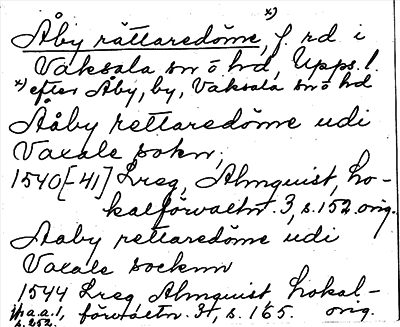 x)
Åby rättaredöme, f. rd i
Vaksala sn o hd, Upps. l.
x) efter Åby, by, Vaksala sn o hd
Aåby rettaredöme udi
Vaxale sokn,
1540[-41] Lreg, Almquist, Lo-
kalförvaltn. 3, s. 152. orig.
Aaby rettaredöme udi
Vaxale socknn
1544 Lreg, Almquist, Lokal-
förvaltn. 3, s. 165. orig.
a.a. 1,
s. 252.